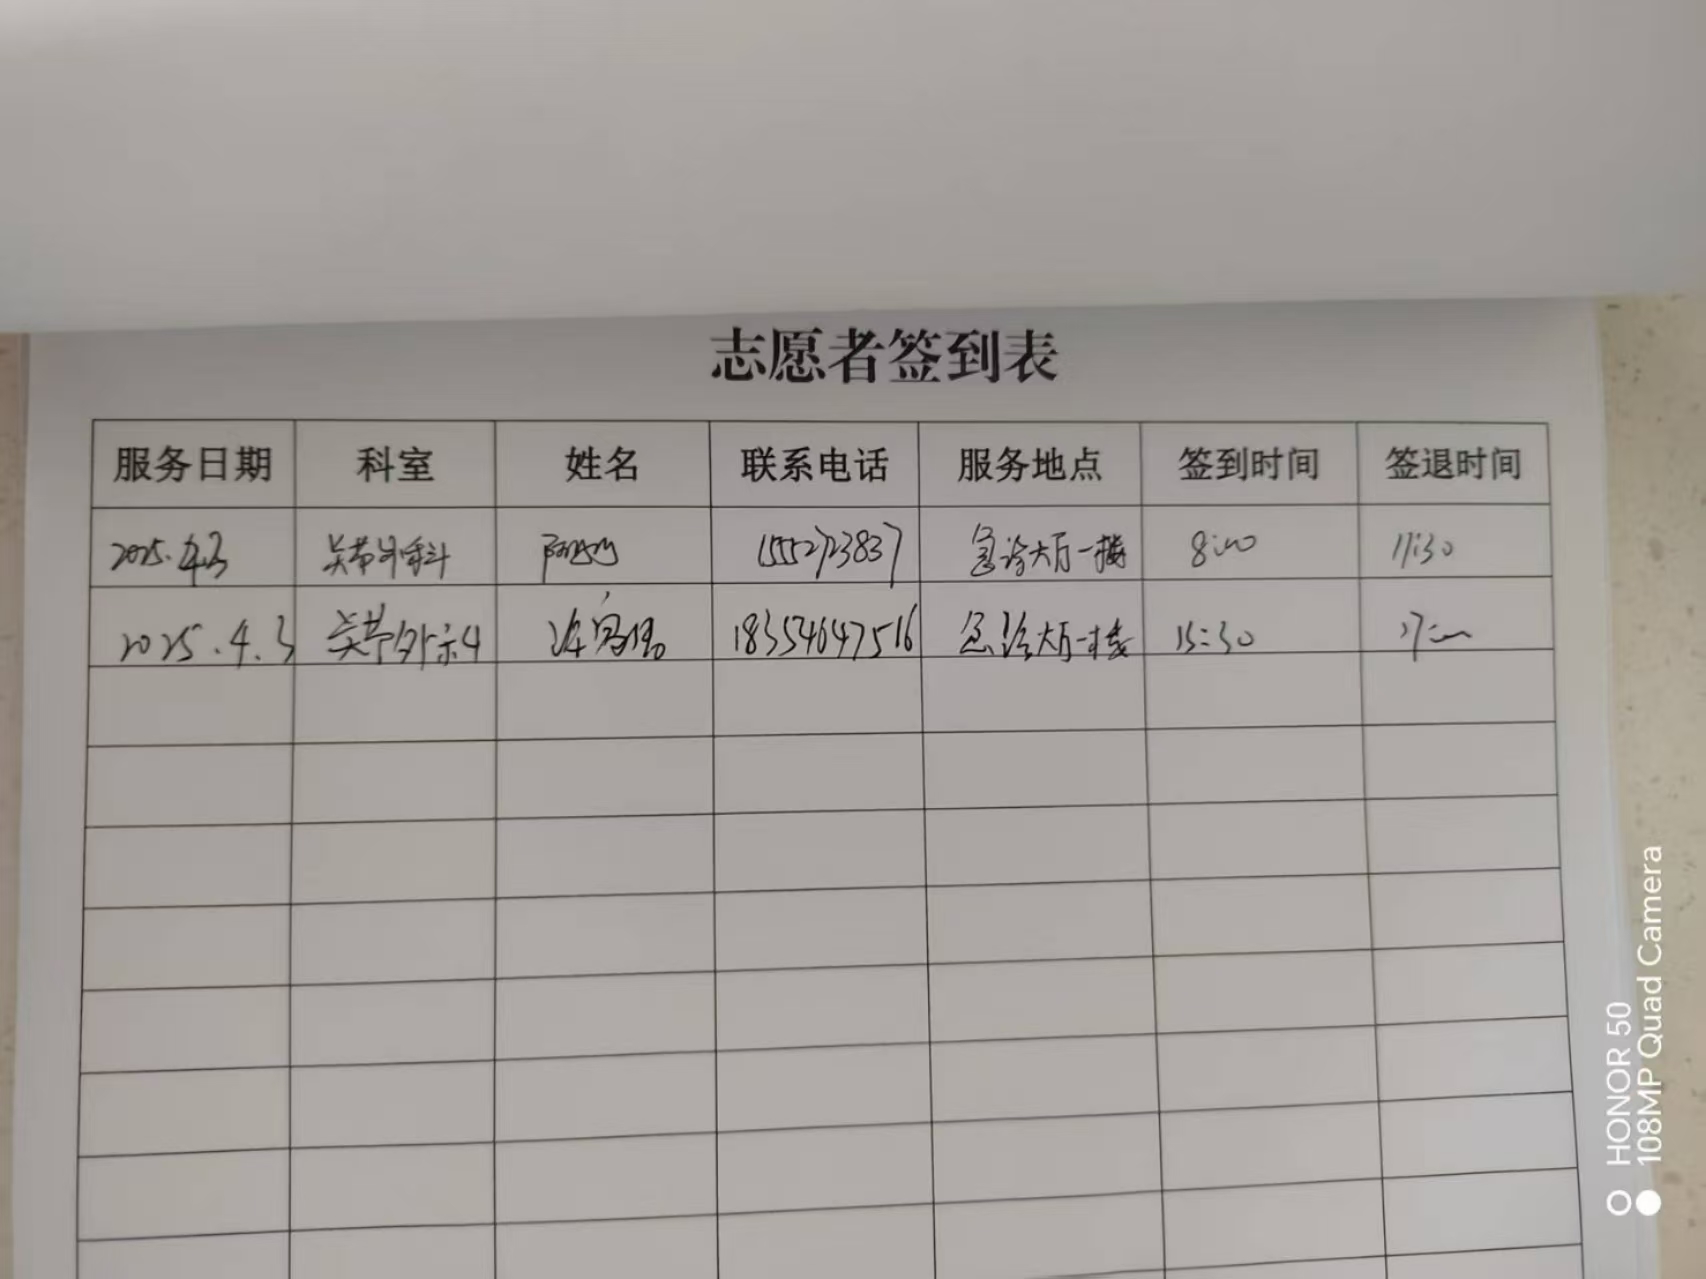 志愿者签到表
服务日期 科室 姓名 联系电话 服务地点 签到时间 签退时间
2025.4.3 关节外科 急诊大厅一楼 8:00 11:30
2025.4.3 关节外科 18354647516 急诊大厅一楼 15:30 17:00
HONOR 50
108MP Quad Camera